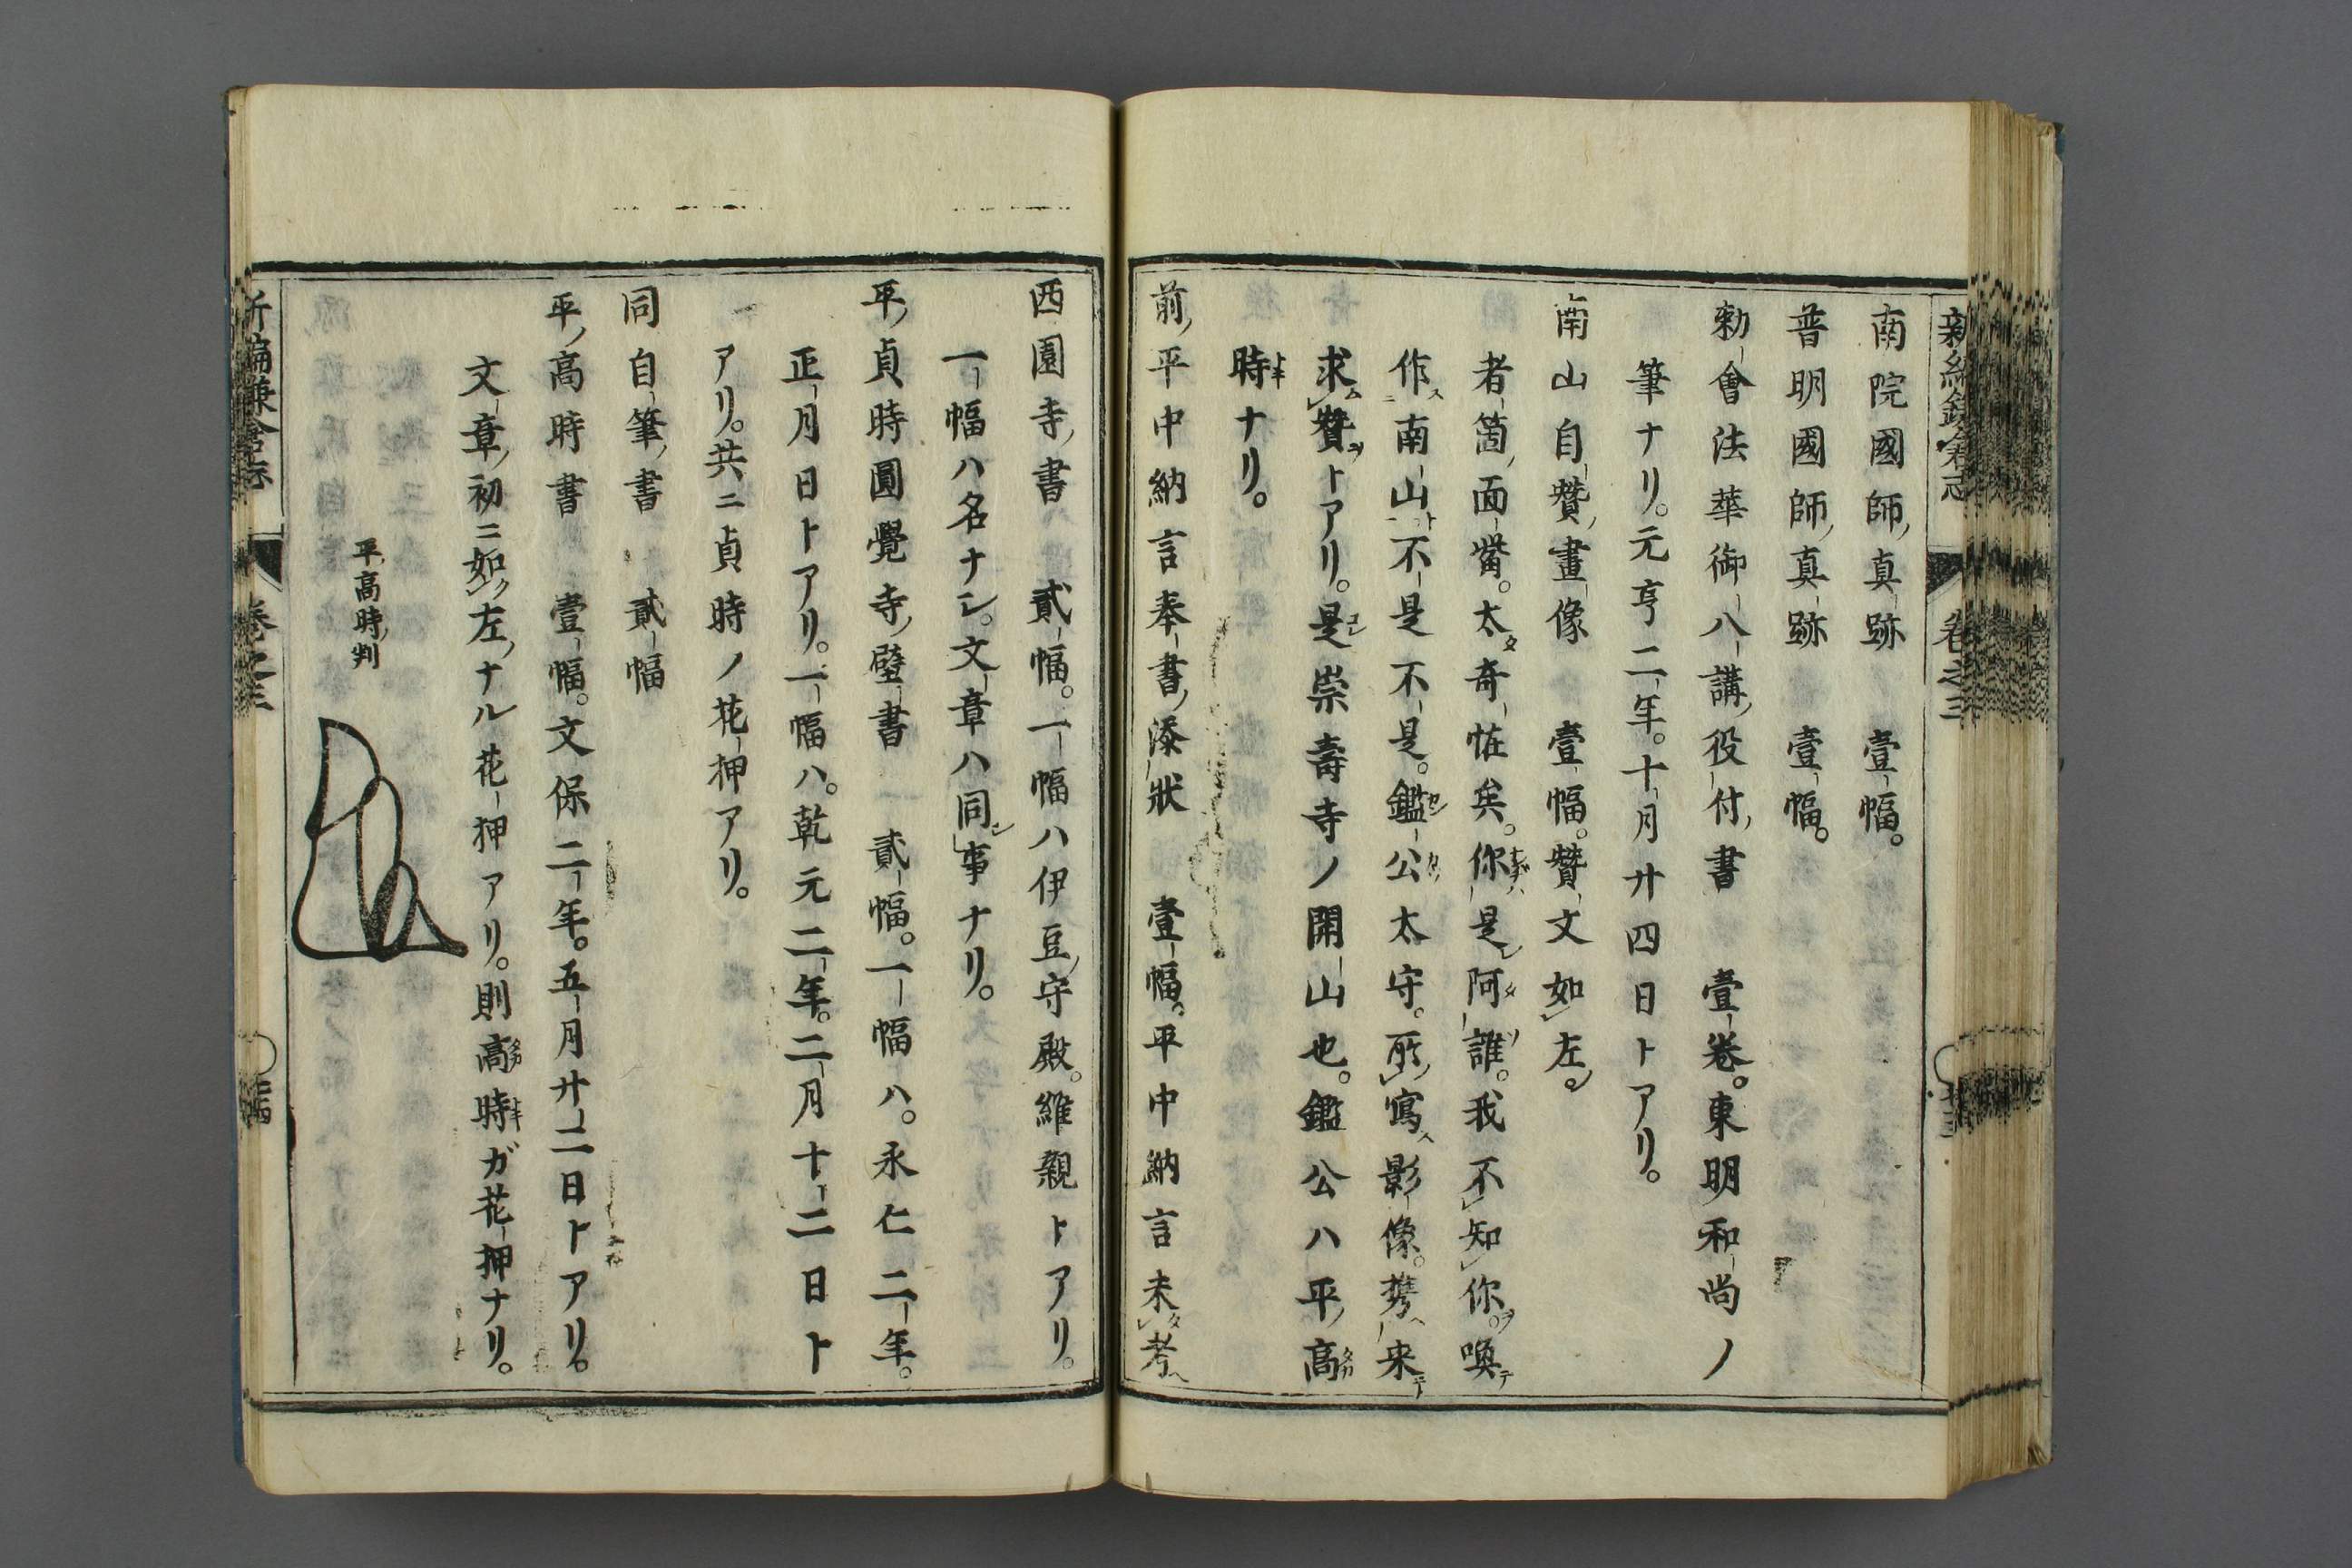 新編鎌倉志　卷之三
南院國師ノ真跡　壹幅。
普明國師ノ真跡　壹幅。
勅會法華御八講ノ役付ノ書　壹卷。東明和尚ノ
筆ナリ。元亨二年。十月廿四日トアリ。
南山自贊ノ畫像　壹幅。贊ノ文如左。
者箇ノ面觜。太奇恠矣。你是阿誰。我不知你。喚
作南山。不是不是。鑑公太守。所寫影像。携来
求贊トアリ。是崇壽寺ノ開山也。鑑公ハ平ノ高
時ナリ。
前ノ平中納言奉書ノ添狀　壹幅。平中納言未考
西園寺ノ書　貳幅。一幅ハ伊豆ノ守殿。維親トアリ。
一幅ハ名ナシ。文章ハ同事ナリ。
平ノ貞時圓覺寺ノ壁書　貳幅。一幅ハ。永仁二年。
正月日トアリ。一幅ハ。乾元二年。二月十二日ト
アリ。共ニ貞時ノ花押アリ。
同自筆ノ書　貳幅
平ノ高時書　壹幅。文保二年。五月廿二日トアリ。
文章ノ初ニ如左ノナル花押アリ。則高時ガ花押ナリ。
平ノ高時ノ判
新編鎌倉志　卷之三